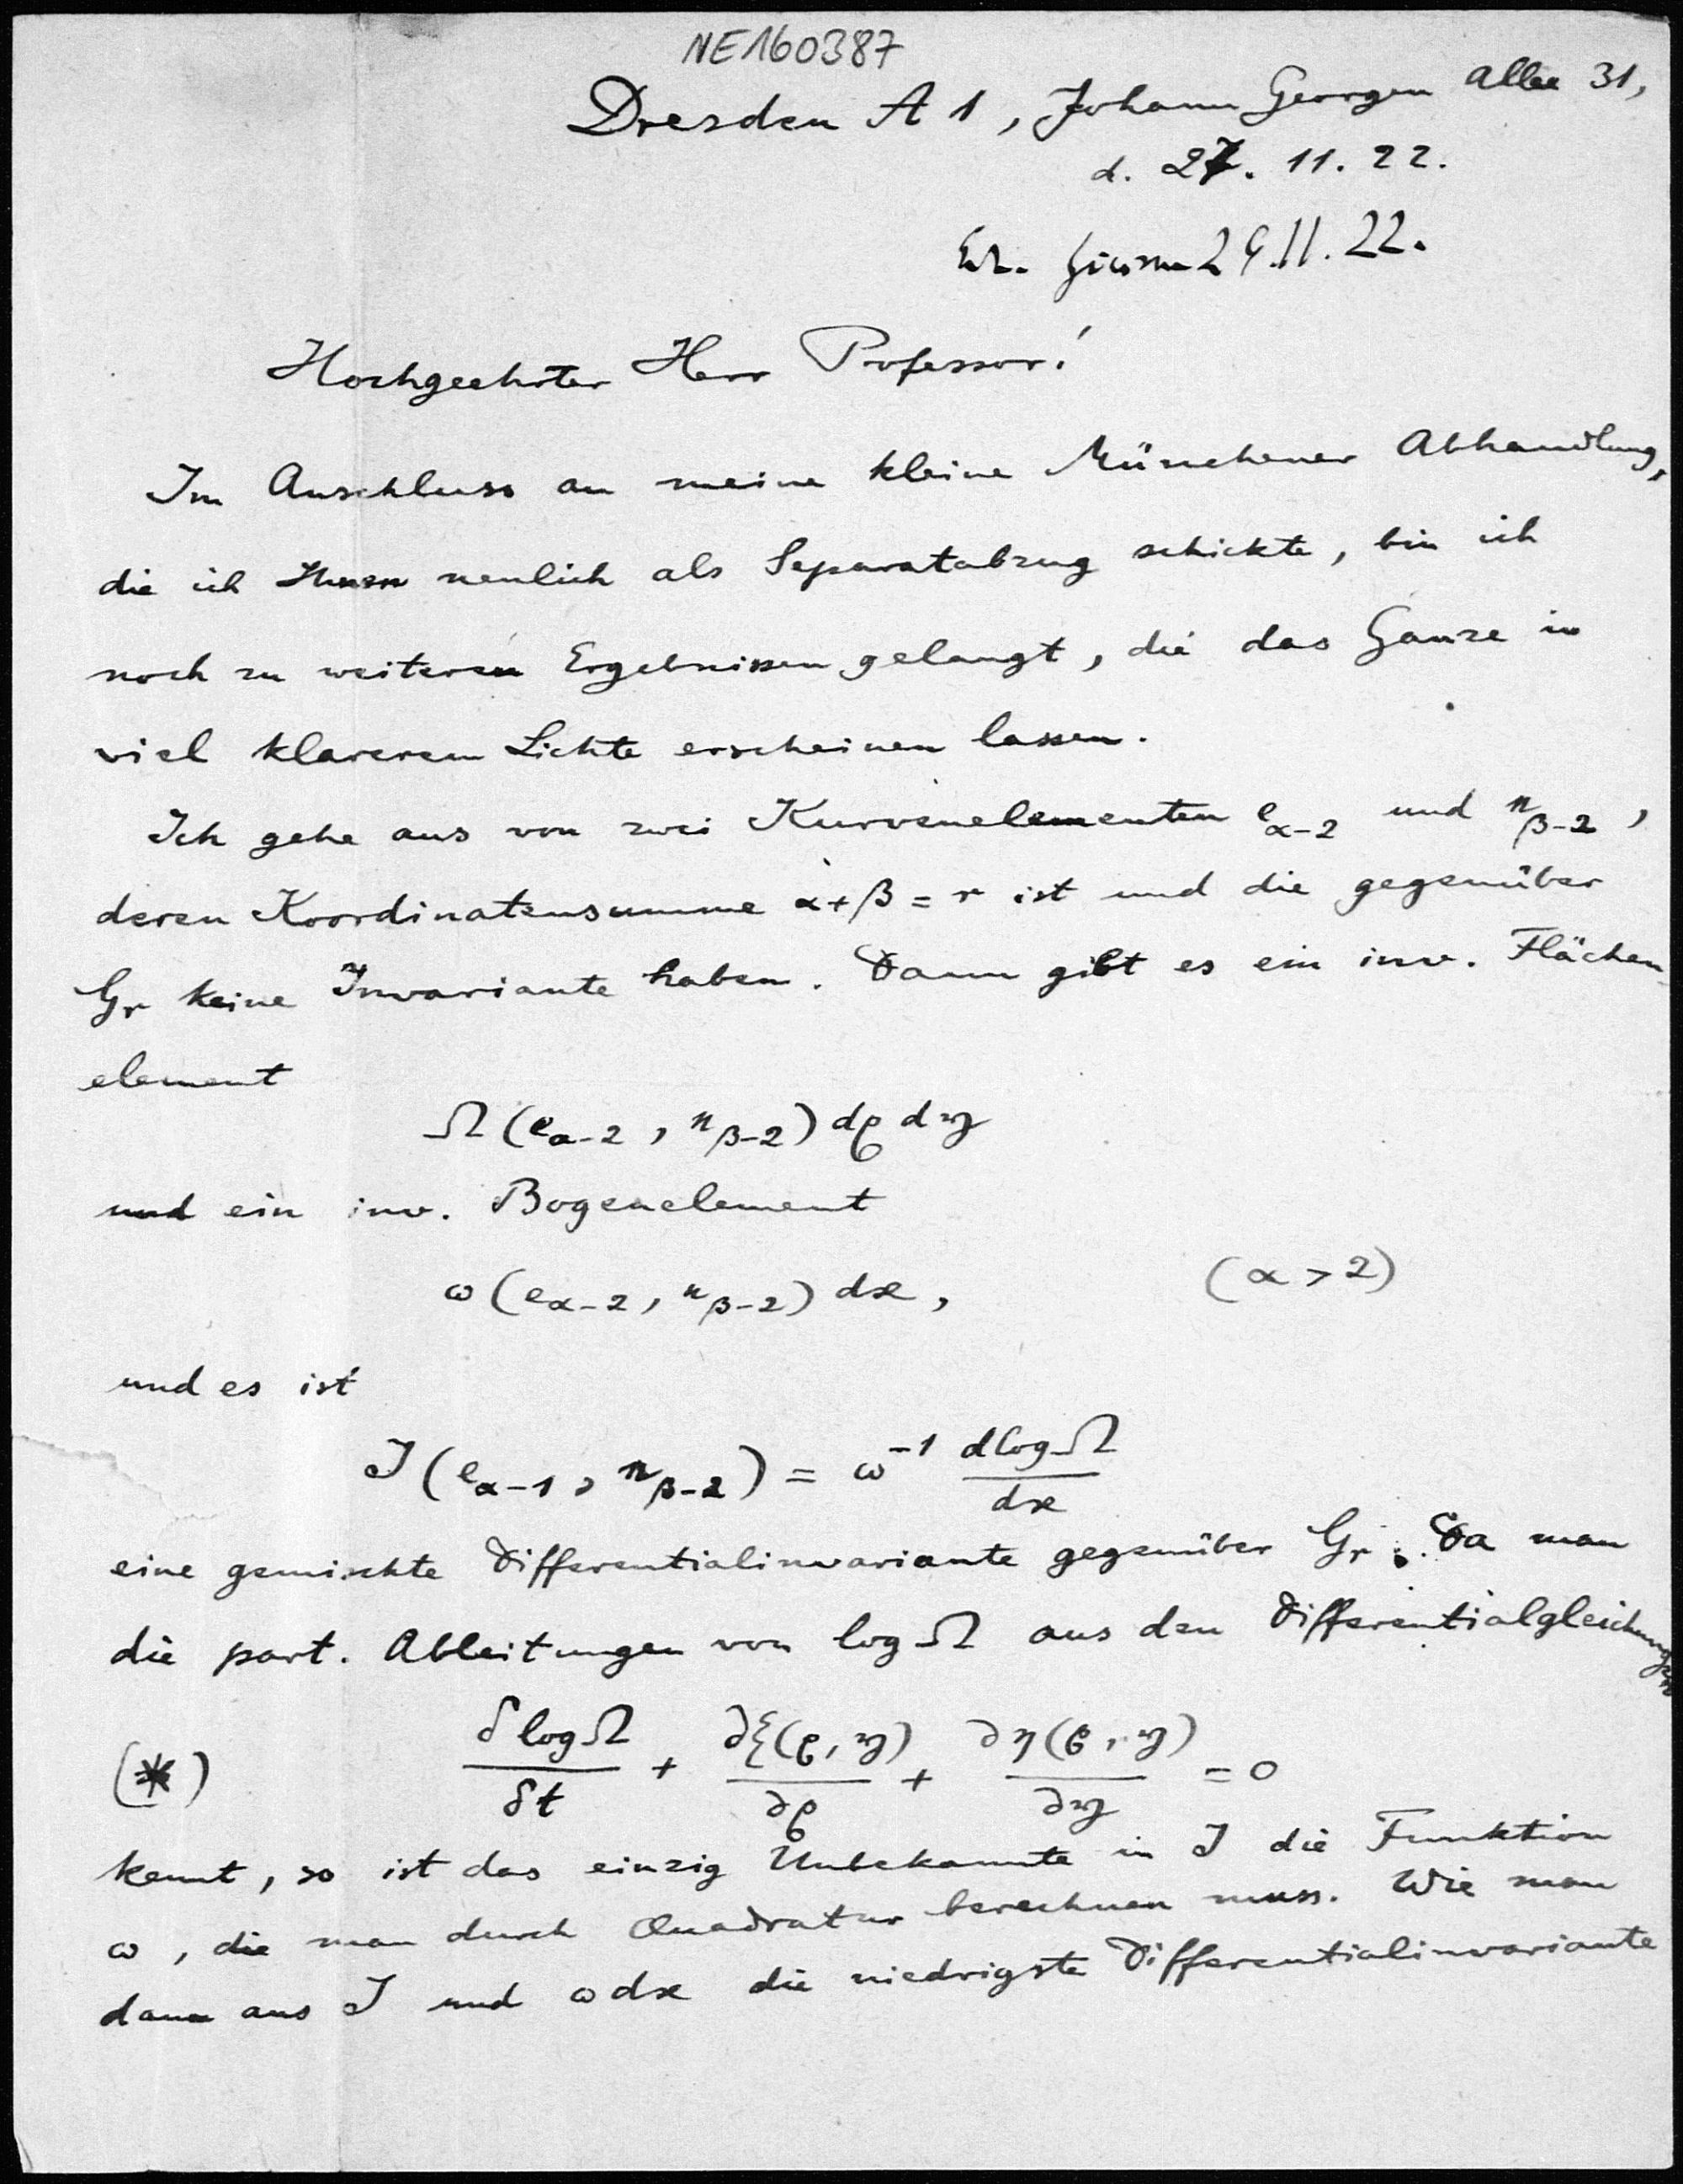 NE160387
Dresden A 1, Johann Georgen Allee 31,
d. 27. 11. 22.
29.11.22.
Hochgeehrter Herr Professor!
Im Anschluss an meine kleine Münchener Abhandlung,
die ich Ihnen neulich als Separatabzug schickte, bin ich
noch zu weiteren Ergebnissen gelangt, die das Ganze in
viel klarerem Lichte erscheinen lassen.
Ich gehe aus von zwei Kurvenelementen e_{α-2} und n_{β-2},
deren Koordinatensumme α+β = r ist und die gegenüber
G_r keine Invariante haben. Dann gibt es ein inv. Flächen-
element
Ω (e_{α-2}, n_{β-2}) dξ dη
und ein inv. Bogenelement
ω (e_{α-2}, n_{β-2}) dx, (α > 2)
und es ist
J (e_{α-1}, n_{β-2}) = ω^{-1} \frac{d log Ω}{dx}
eine gemischte Differentialinvariante gegenüber G_r. Da man
die part. Ableitungen von log Ω aus den Differentialgleichungen
(*) \frac{δ log Ω}{δt} + \frac{∂ξ(ξ, η)}{∂ξ} + \frac{∂η(ξ, η)}{∂η} = 0
kennt, so ist das einzig Unbekannte in J die Funktion
ω, die man durch Quadratur berechnen muss. Wie man
dann aus J und ω dx die niedrigste Differentialinvariante